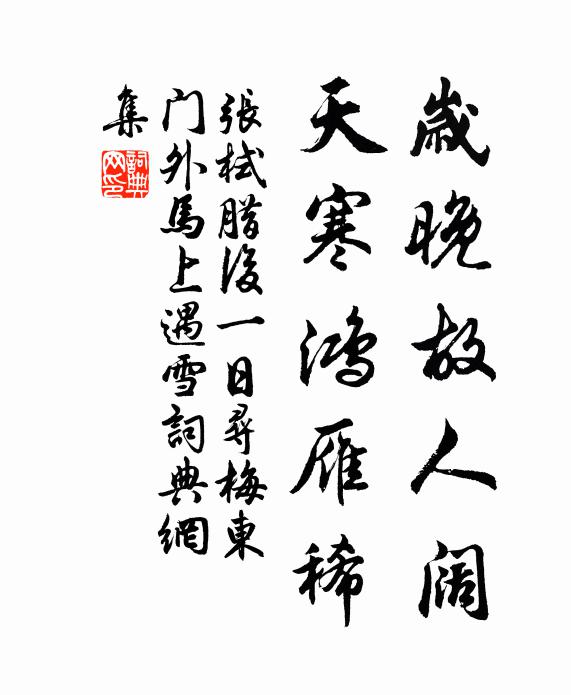 歲晚故人阔
天寒鴻雁稀
張栻腊後一日尋梅東
门外馬上遇雪詞典網
集
詞典
网印